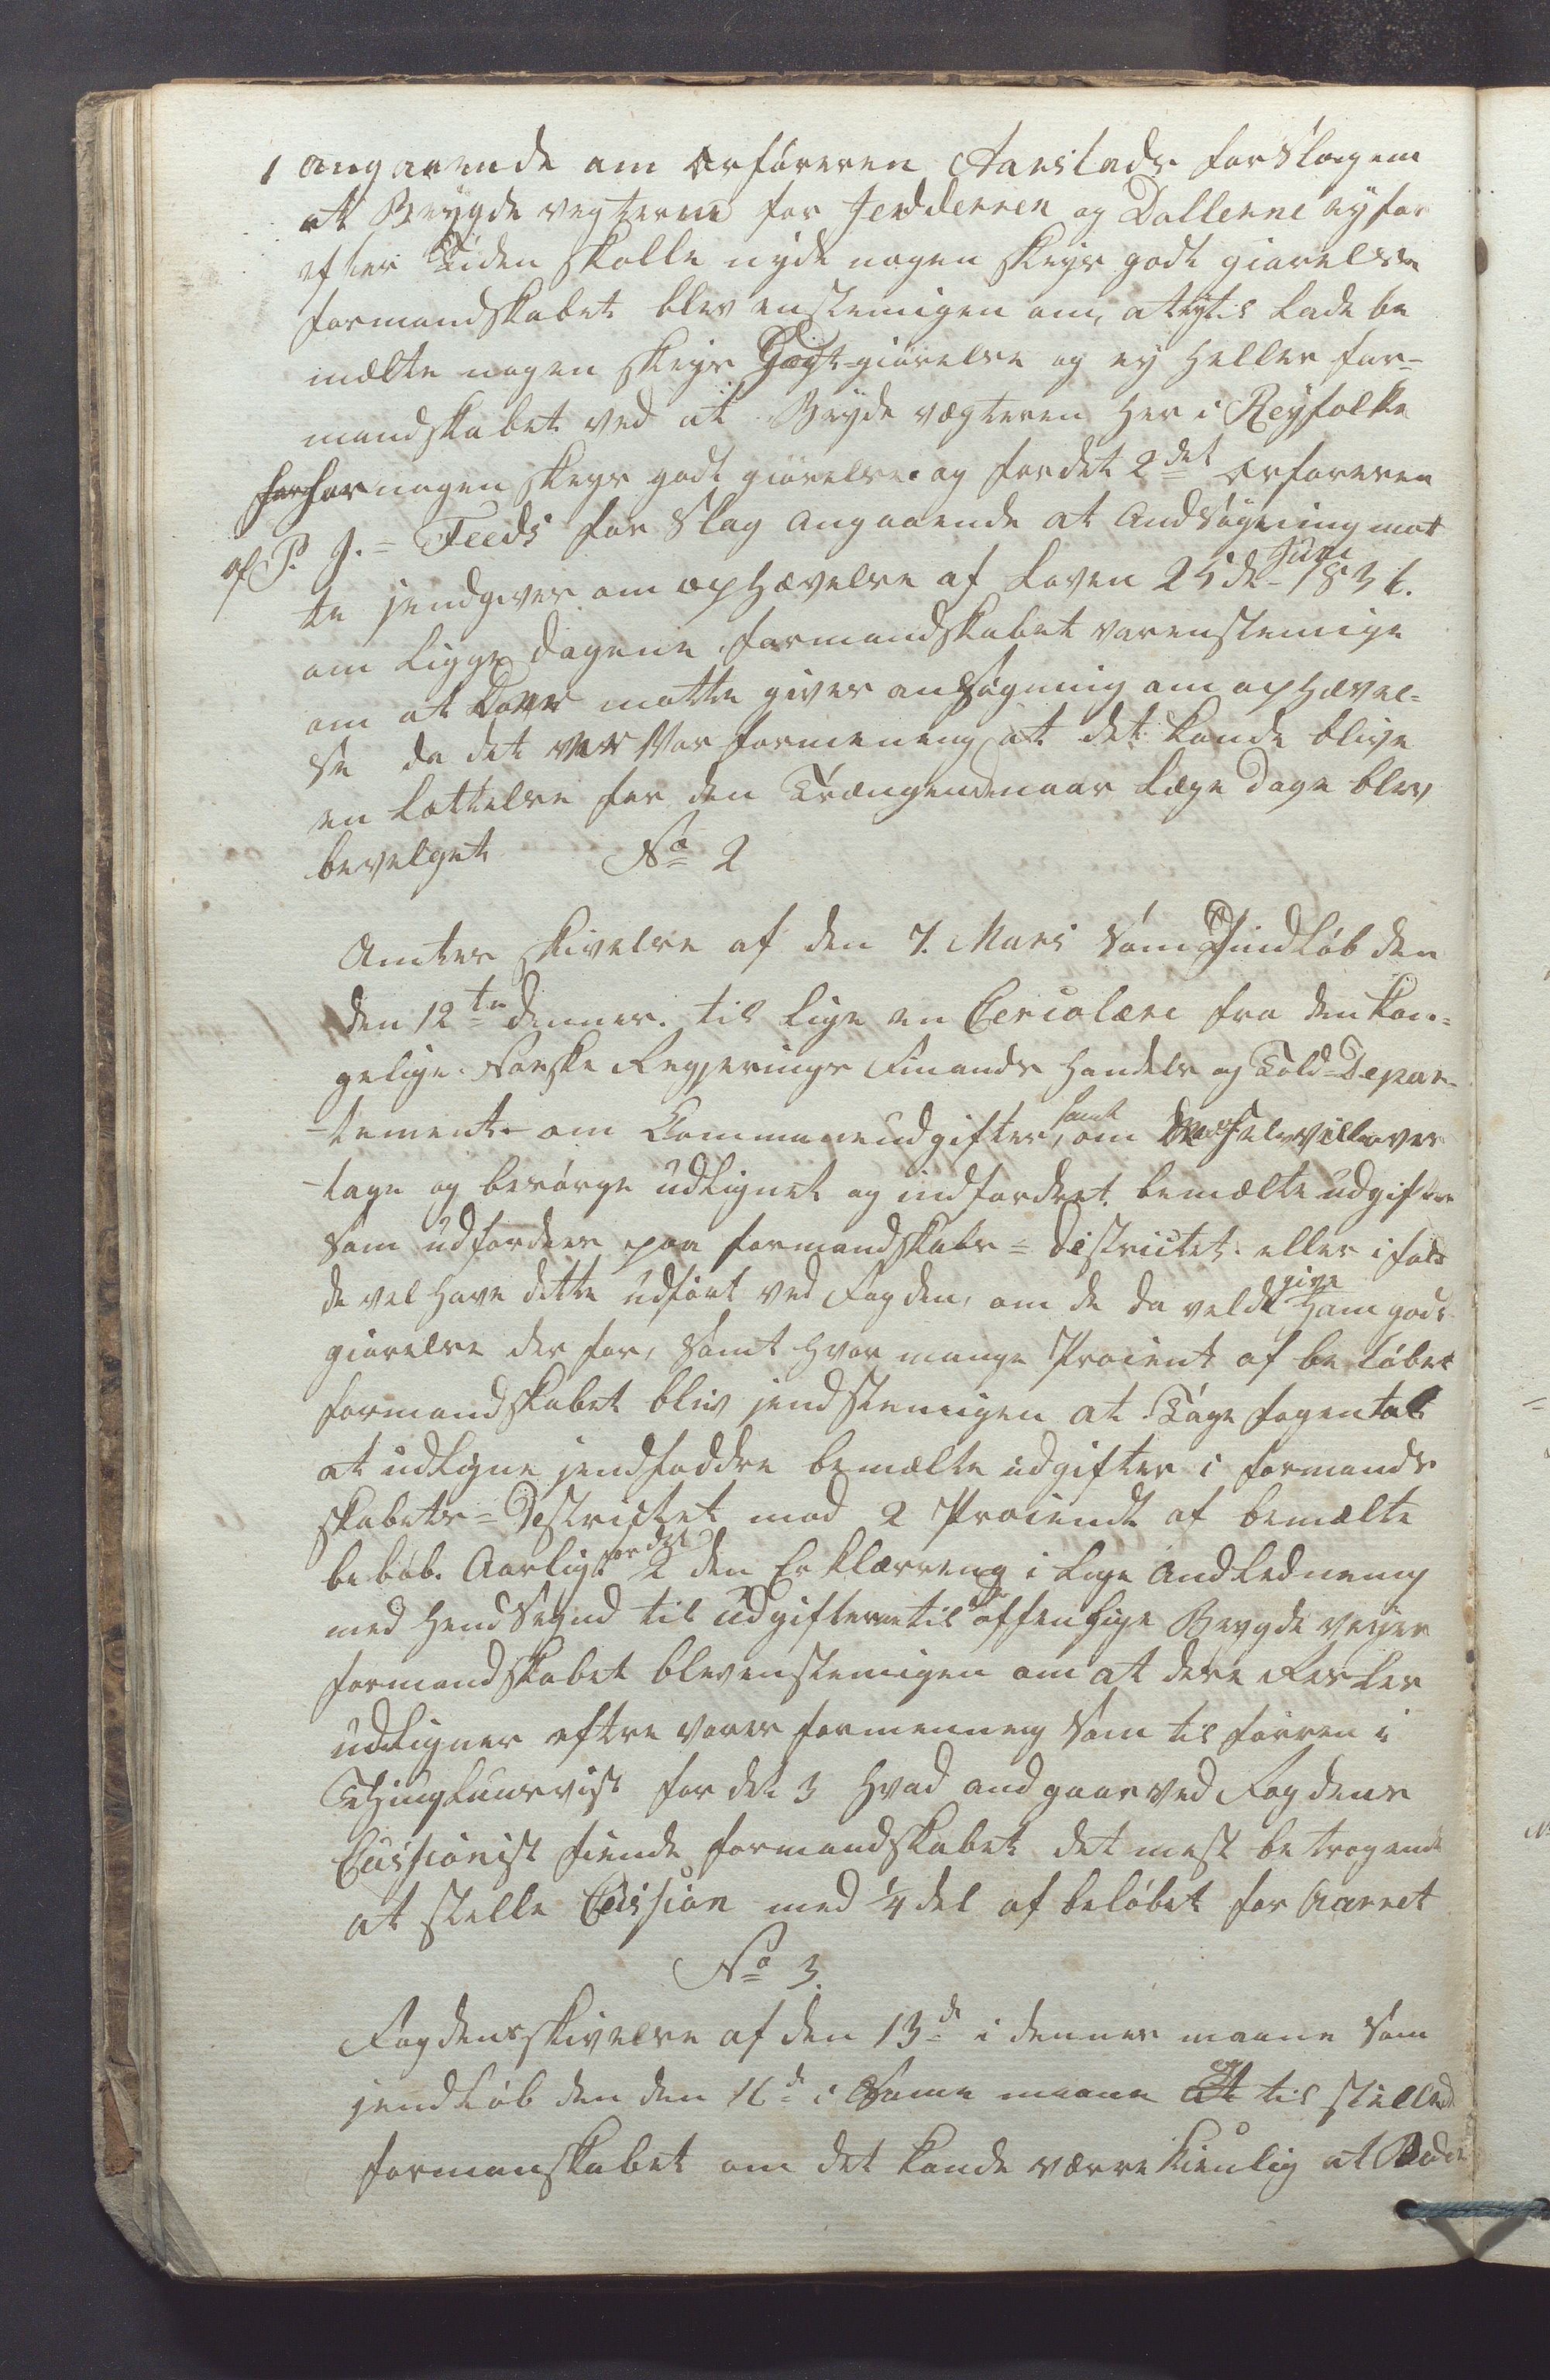 1 angaaende om Orføreren Aarstads forslagem
at Bøygde vegterne for Jedderren og Dallerne ey for
efter Tiden skolle nyde nogen skys godt giørelse
formandskabet blev enstemigen om, at ey til Lade be
melte nogen skys Godt-giørelse og ey heller for-
mandskabet ved at Bøyde vægteren her i Reyfolke
har nogen skys godt giørelse. og for det 2det Orføreren
af P. J. = Feeds for slag angaaende at andsøgning mot
te jendgives om ophævelse af Loven 25de Juni 1836.
om Ligge dagene formandskabet var enstemige
om at Dover motte gives ansøgning om ophævel-
se da det var Vor formening at det konde blive
en Lættelse for den Trængende naar Læge Dage blev
bevelget No 2
Amtes skivelse af den 7. Mars som Jindløb den
den 12te dennes. til lige en Cercolære fra den kon-
gelige Norske Regjerings Finands Handels og Told-Depar-
-tement. om Communeudgifter, samt om de selv vill over
-tage og besørge udlignet og indfordret bemælte udgifter
som udfordres paa formandskabs = districtet. eller i fald
de vel have dette udført ved Fogden, om de da veldt give Ham godt
giørelse der for, samt hvor mange Procient af be løbet
formandskabet blev jendstemigen at Tage fogen tel
at udligne jendfoddre bemælte udgifter i formands
skabets = Destrictet mod 2 Prociendt af bemælte
beløb. Aarligt for det 2 den Erklærreng i lige Andledneng
med HendSeynd til udgifterne til offenlige Bøygde veyer
formandskabet blev enstemigen om at dere
udligner eftre vores formenneng som til førren i
Thinglausvist for det 3 hvad andgaar ved Fogdens
Cusjionist fiende formandskabet det mest betrygende
at stelle Cusjion med 1/4 del af beløbet for Aarret
No 3.
Fogdens skivelse af den 13de i dennes maane som
jendløb den den 16de i Samme maane at til stelled
formanskabet om det konde værre kienlig at